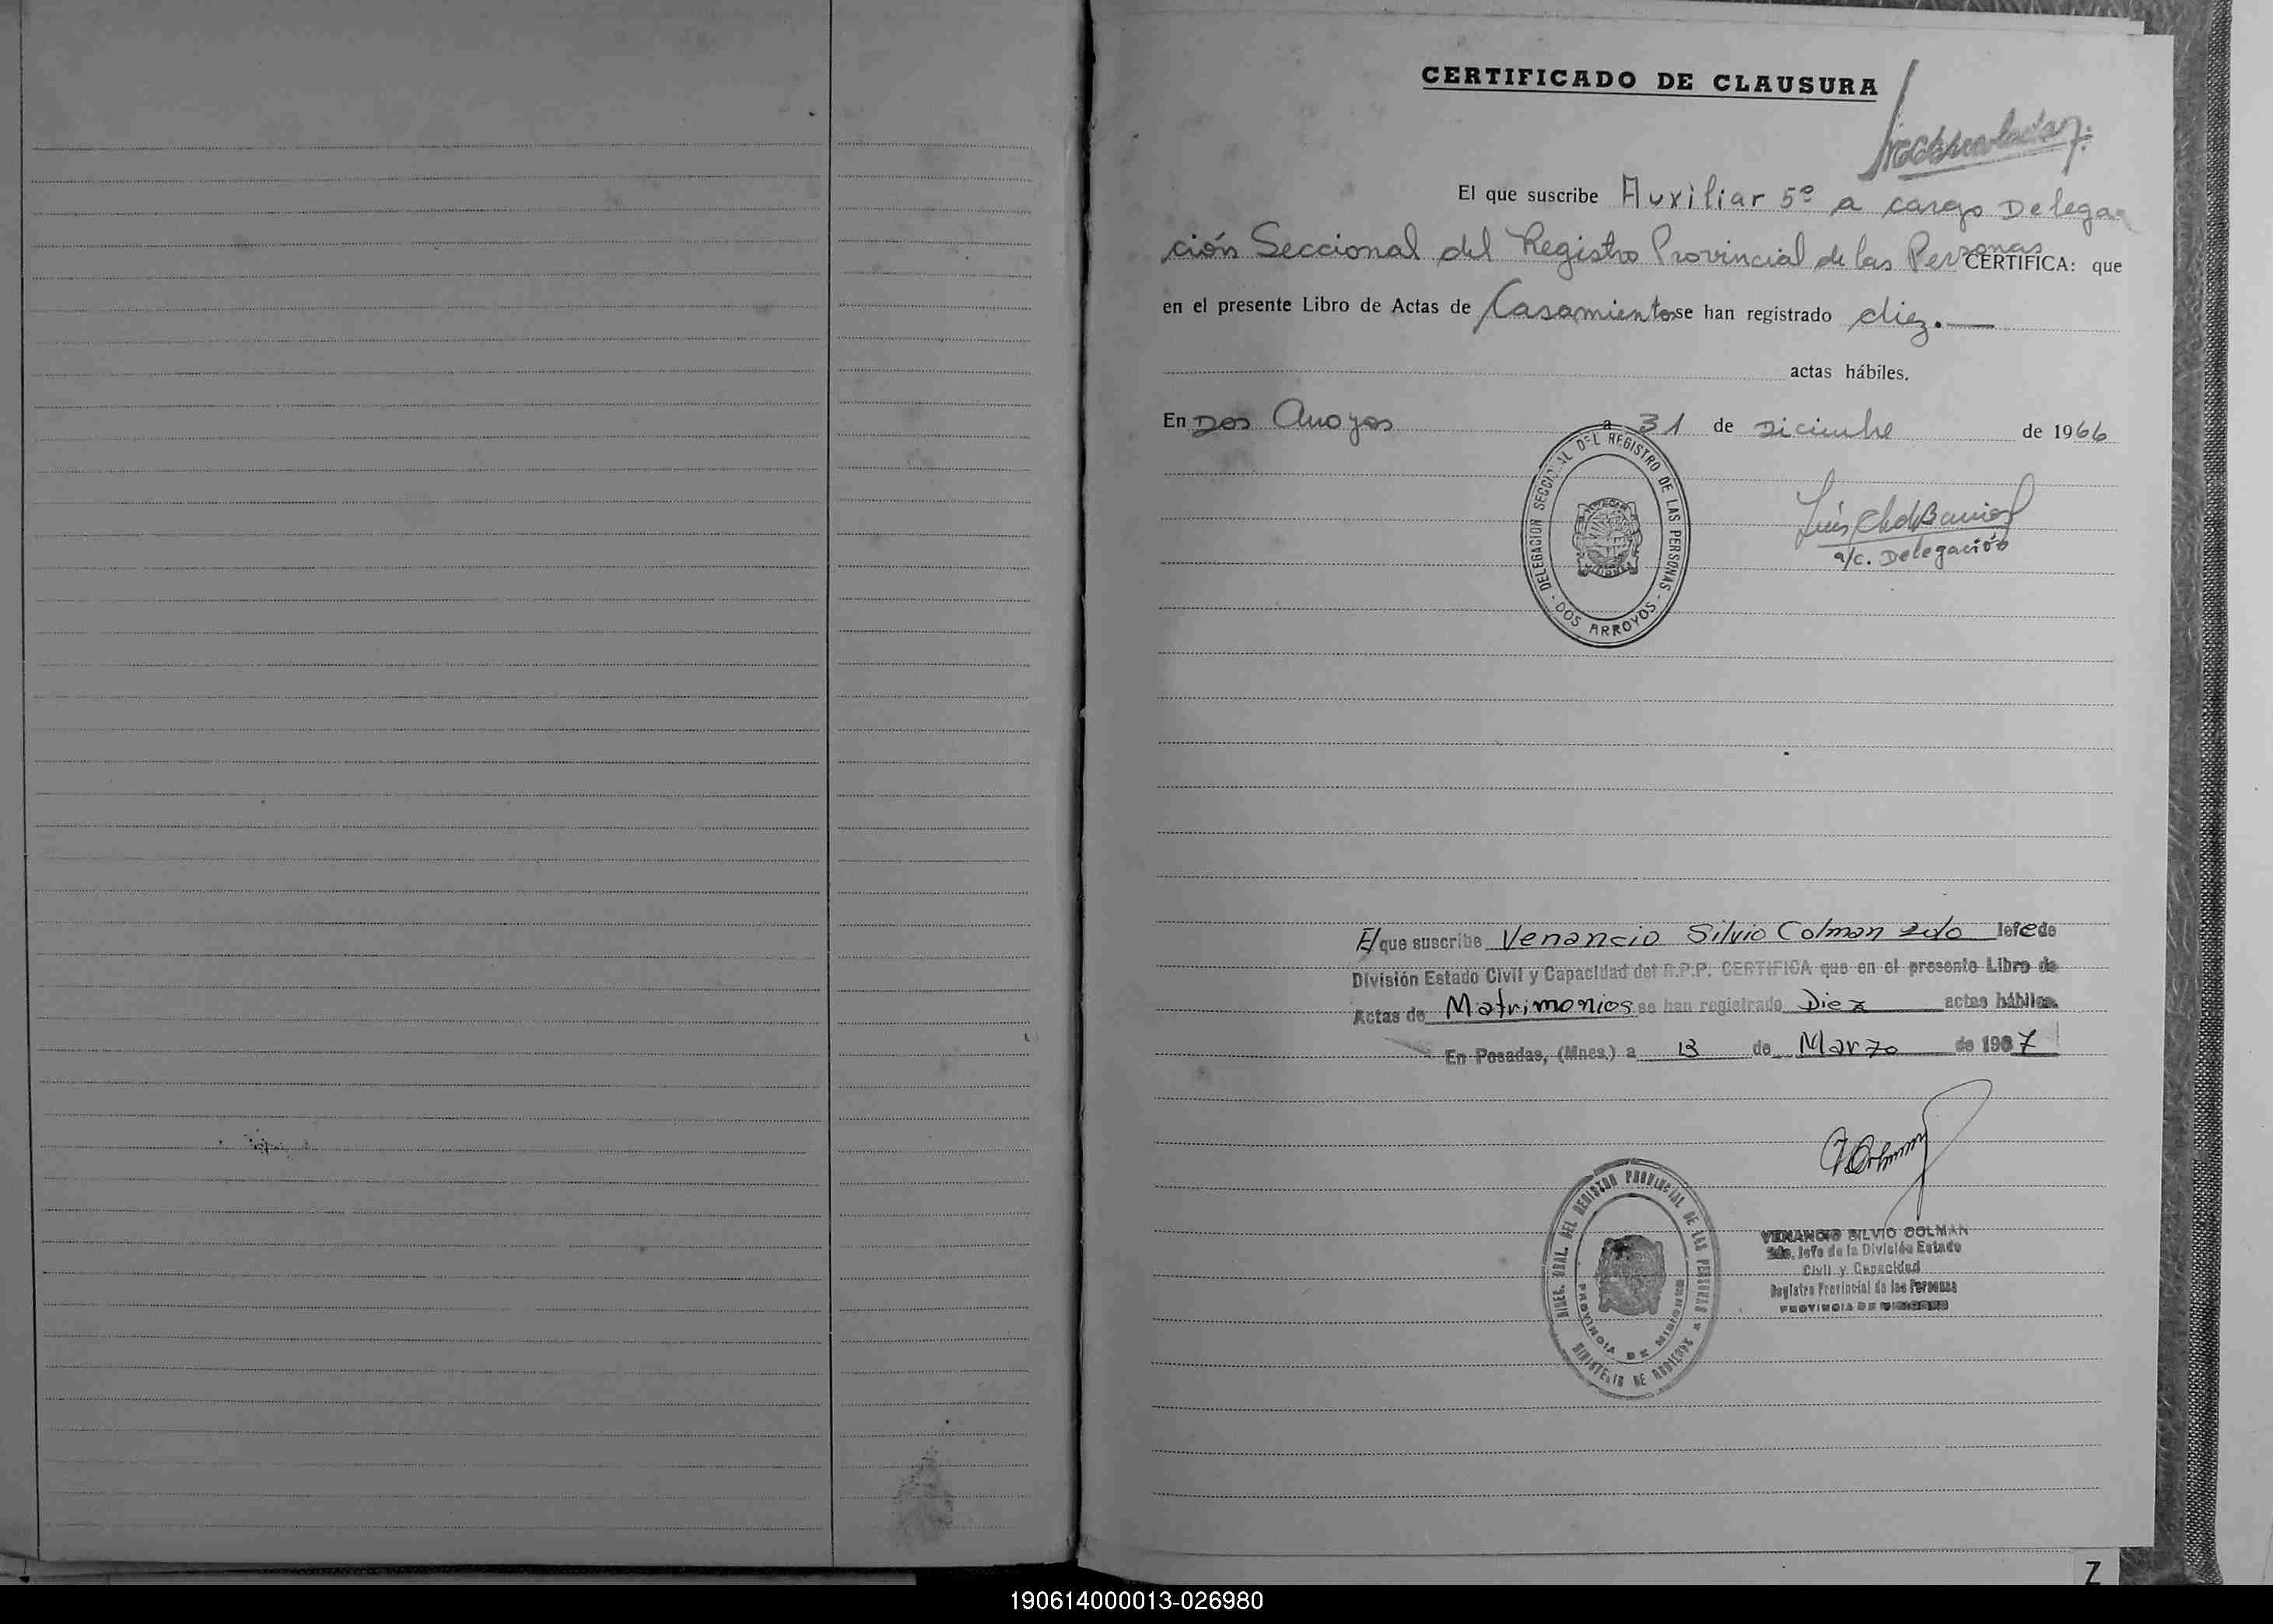 CERTIFICADO DE CLAUSURA
El que suscribe Auxiliar 5º a cargo Delega-
ción Seccional del Registro Provincial de las Personas CERTIFICA: que
en el presente Libro de Actas de Casamientos se han registrado diez.—
actas hábiles.
En Dos Arroyos a 31 de Diciembre de 1966
DELEGACION SECCIONAL DEL REGISTRO DE LAS PERSONAS - DOS ARROYOS -
Luis
a/c. Delegación
El que suscribe Venancio Silvio Colman 2do Jefe de
División Estado Civil y Capacidad del R.P.P. CERTIFICA que en el presente Libro de
Actas de Matrimonios se han registrado Diez actas hábiles.
En Posadas, (Mnes.) a 13 de Marzo de 1967
VENANCIO SILVIO COLMAN
2do. Jefe de la División Estado
Civil y Capacidad
Registro Provincial de las Personas
PROVINCIA DE MISIONES
DIREC. GRAL. DEL REGISTRO PROVINCIAL DE LAS PERSONAS
PROVINCIA DE MISIONES
Z
190614000013-026980